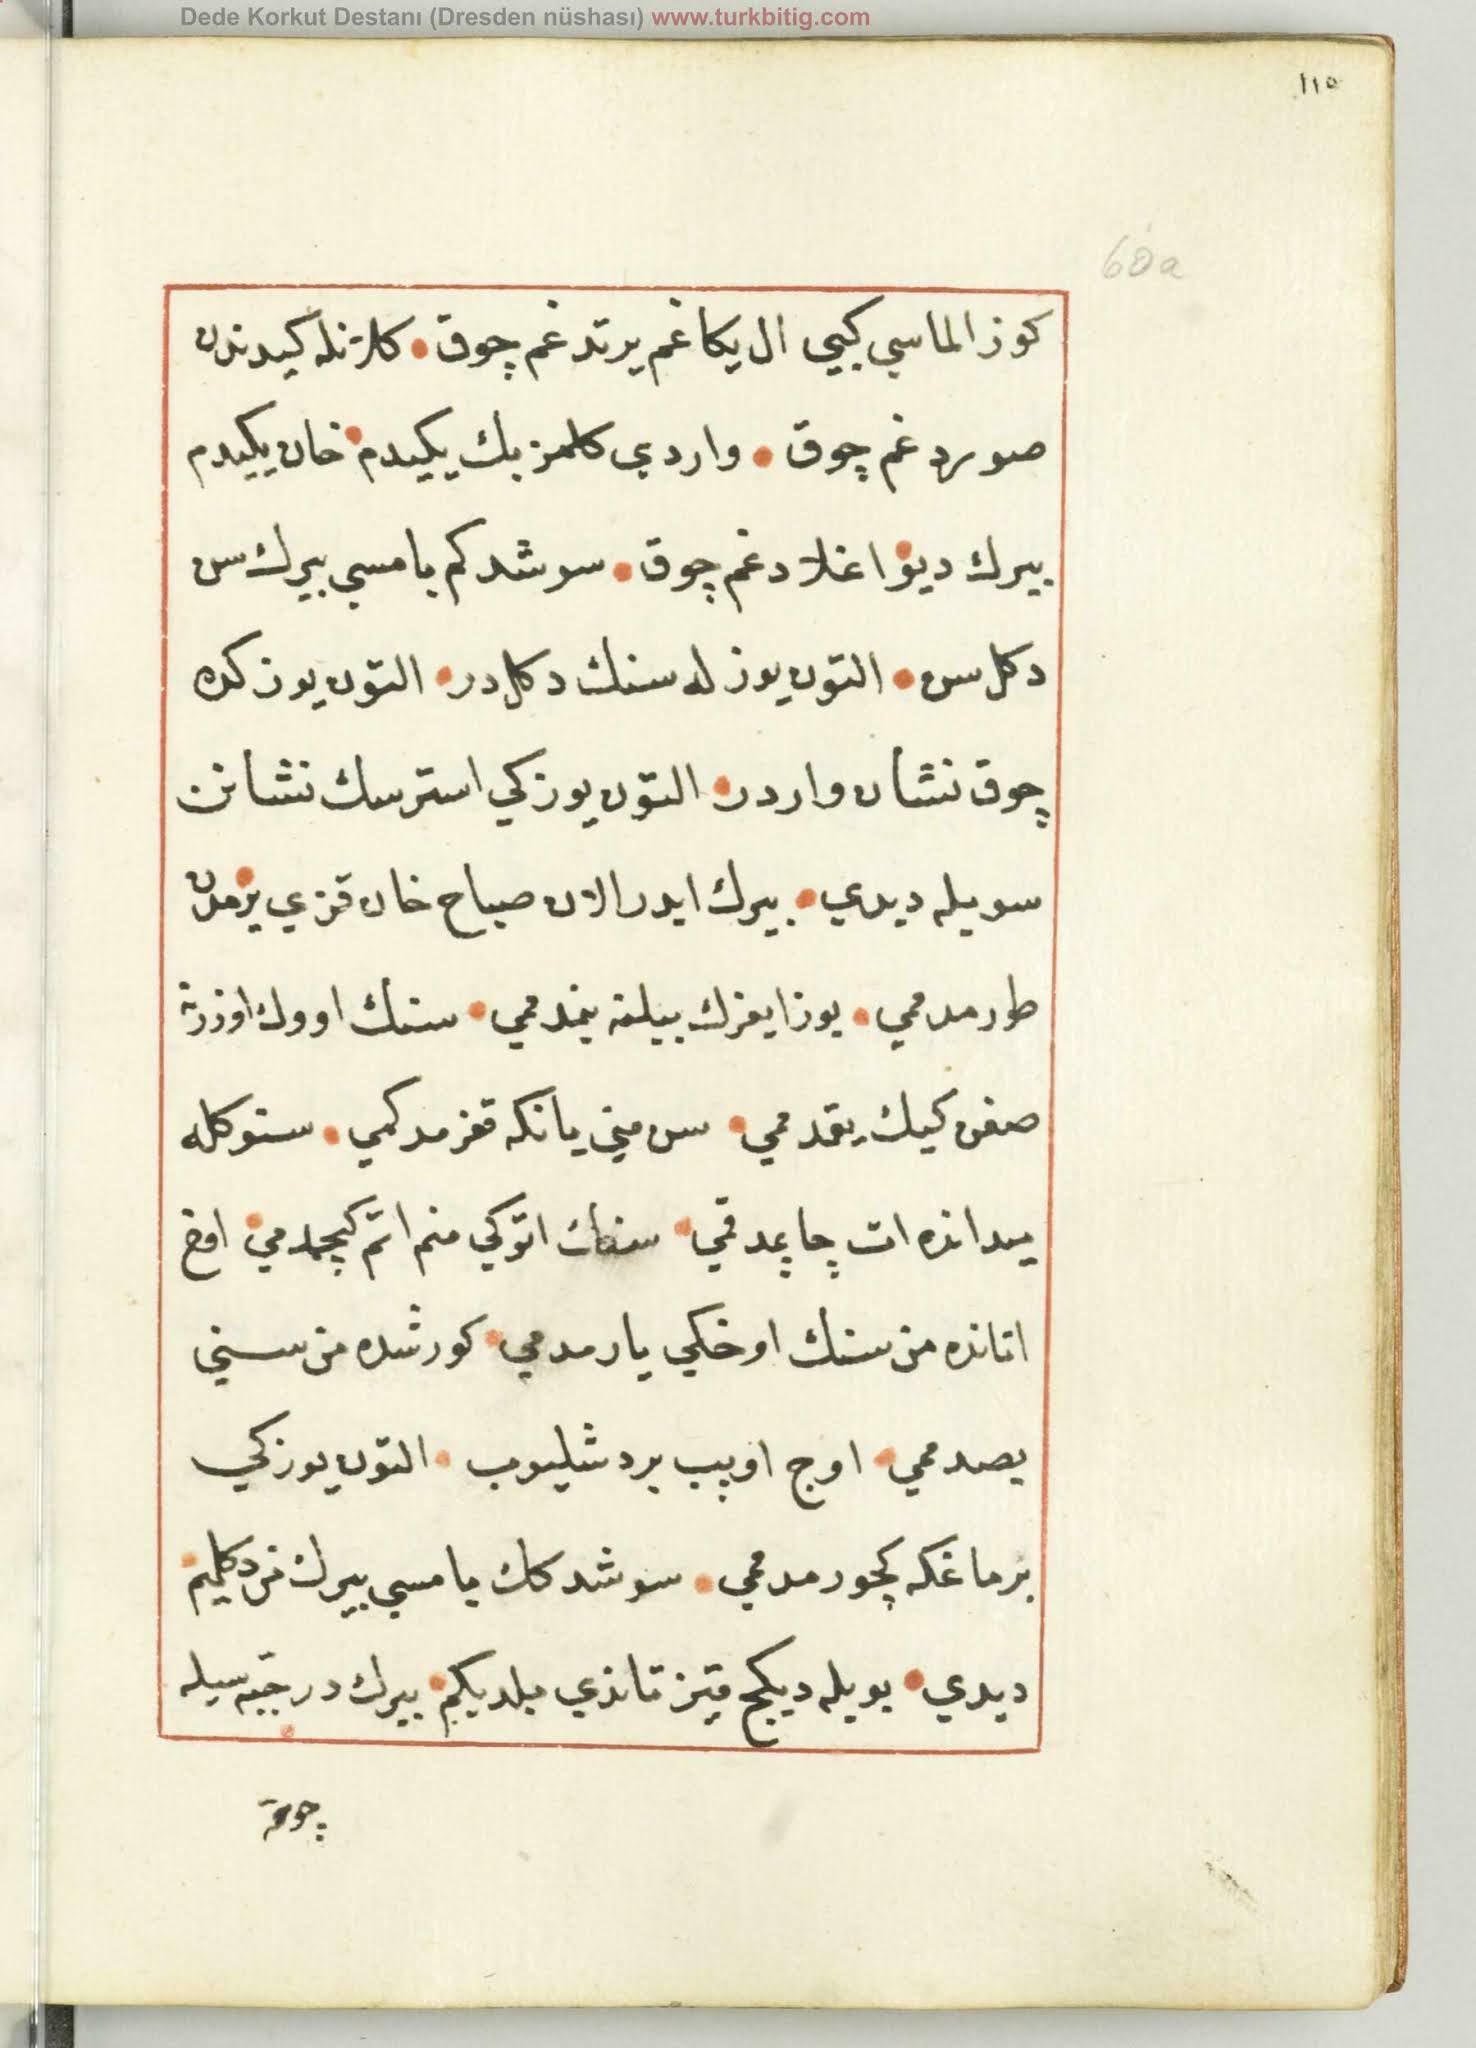 Dede Korkut Destanı (Dresden nüshası) www.turkbitig.com
١١٥
60a
كوز الماسي كبي ال يكاغم يرتدغم چوق • كلانله كيدندن
صوردغم چوق • واردي كلمز بك يكيدم • خان يكيدم
بيرك ديو اغلادغم چوق • سوشدكم بامسي بيرك سن
دكل سن • التون يوزله سنك دكل در • التون يوزكده
چوق نشان واردر • التون يوزكي استرسك نشانن
سويله ديدي • بيرك ايدر الان صباح خان قزي يرمدن
طورمدممي • بوز ايغرك بيلنه بنمدممي • سنك اووك اوزرنه
صغن كيك يقمدممي • سن مني يانكه قغرمدكمي • سنوكله
ميدانده ات چاپمدقمي • سنك اتوكي منم اتم كچمدمي • اوخ
اتانده من سنك اوخكي يارمدمي • كورشده من سني
بصمدممي • اوچ اوپب بر دشليوب • التون يوزكي
برماغكه كچورمدممي • سوشدكك بامسي بيرك من دكلميم •
ديدي • بويله ديكج قيز تاندي بلديكم • بيرك در جبه سيله
چوقه